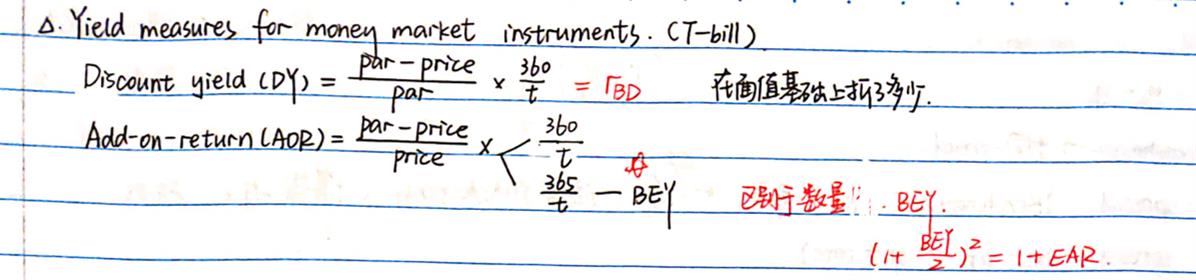 △. Yield measures for money market instruments. (T-bill)
Discount yield (DY) = (par - price)/par × 360/t = rBD 在面值基础上折了多少.
Add-on-return (AOR) = (par - price)/price × < 360/t
365/t — BEY 区别于数量中 BEY.
(1 + BEY/2)² = 1 + EAR.